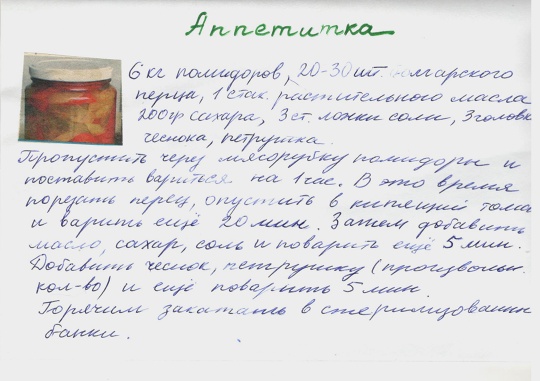 Аппетитка
6 кг помидоров, 20-30 шт. болгарского
перца, 1 стак. растительного масла
200гр сахара, 3 ст. ложки соли, 3 голов
чеснока, петрушка.
Пропустить через мясорубку помидоры и
поставить вариться на 1 час. В это время
порезать перец, опустить в кипящий тома
и варить ещё 20 мин. Затем добавить
масло, сахар, соль и поварить ещё 5 мин.
Добавить чеснок, петрушку (произвольн.
кол-во) и ещё поварить 5 мин.
Горячим закатать в стерилизованн
банки.